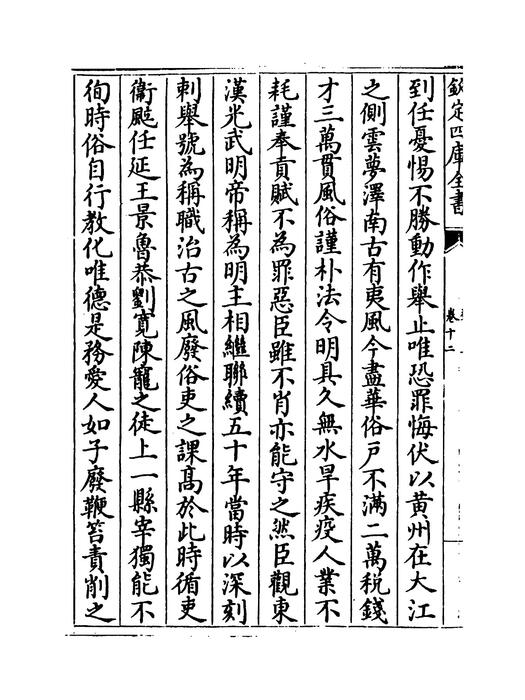 欽定四庫全書
卷十二
到任憂惕不勝動作舉止唯恐罪悔伏以黄州在大江
之側雲夢澤南古有夷風今盡華俗戸不滿二萬税錢
才三萬貫風俗謹朴法令明具久無水旱疾疫人業不
耗謹奉貢賦不為罪惡臣雖不肖亦能守之然臣觀東
漢光武明帝稱為明主相繼聯續五十年當時以深刻
刺舉號為稱職治古之風廢俗吏之課髙於此時循吏
衞颯任延王景魯恭劉寛陳寵之徒上一縣宰獨能不
徇時俗自行教化唯德是務愛人如子廢鞭笞責削之